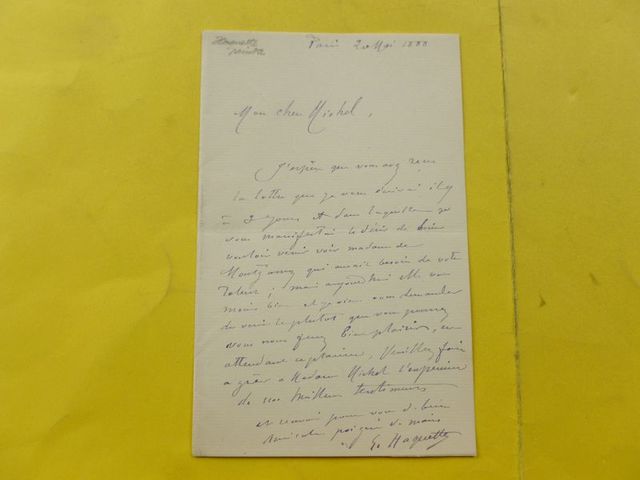 Haquette
peintre
Paris 20 Mai 1888
Mon cher Michel,
J'espère que vous avez reçu
la lettre que je vous écrivai il y
a 2 jours et dans laquelle je
vous manifestai le désir de bien
vouloir venir voir madame de
qui aurait besoin de votre
talent ; mais aujourd'hui elle va
moins bien et je viens vous demander
de venir le plutot que vous pourrez
vous nous ferez bien plaisir, en
attendant ce plaisir, Veuillez faire
agréer a Madame Michel l'expression
de nos meilleurs sentiments
et recevoir pour vous de bien
amicales poignées de mains
G. Haquette